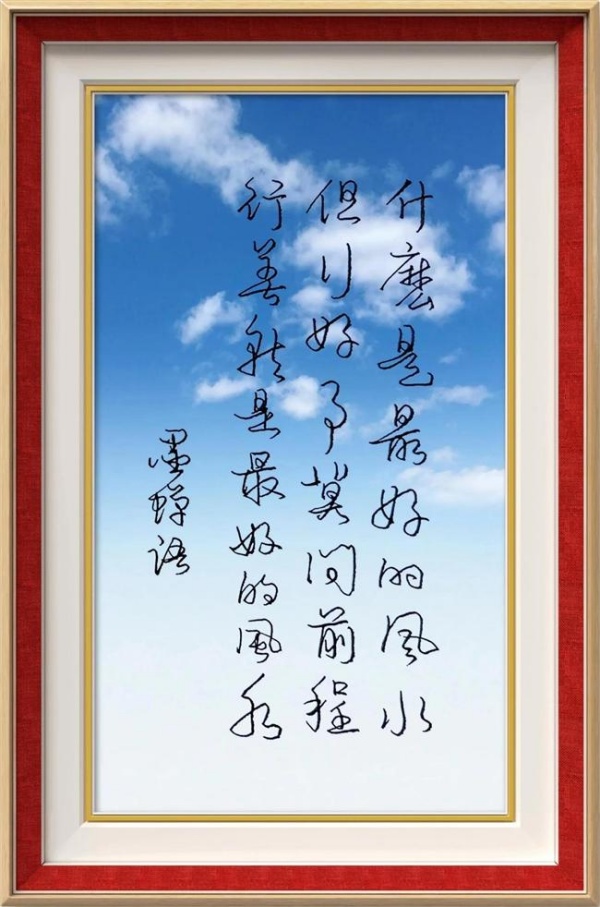 什麽是最好的风水
但行好事莫问前程
行善就是最好的風水
墨蝉语